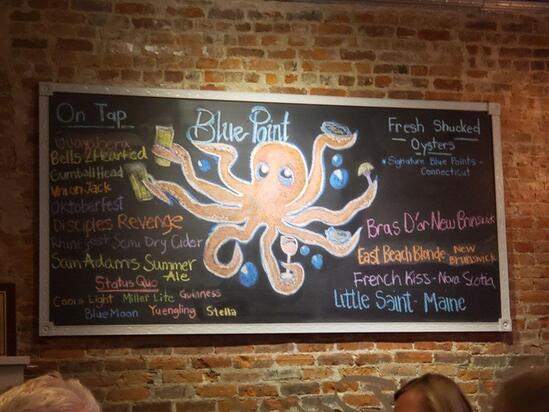 On Tap
Bells 2 Hearted
Gumball Head
Union Jack
Oktoberfest
Disciples Revenge
Rhinegeist Semi Dry Cider
Sam Adams Summer
Ale
Status Quo
Coors Light Miller Lite Guinness
Blue Moon Yuengling Stella
Blue Point
Fresh Shucked
Oysters
Signature Blue Points -
Connecticut
Bras D'or New Brunswick
East Beach Blonde New
Brunswick
French Kiss - Nova Scotia
Little Saint - Maine